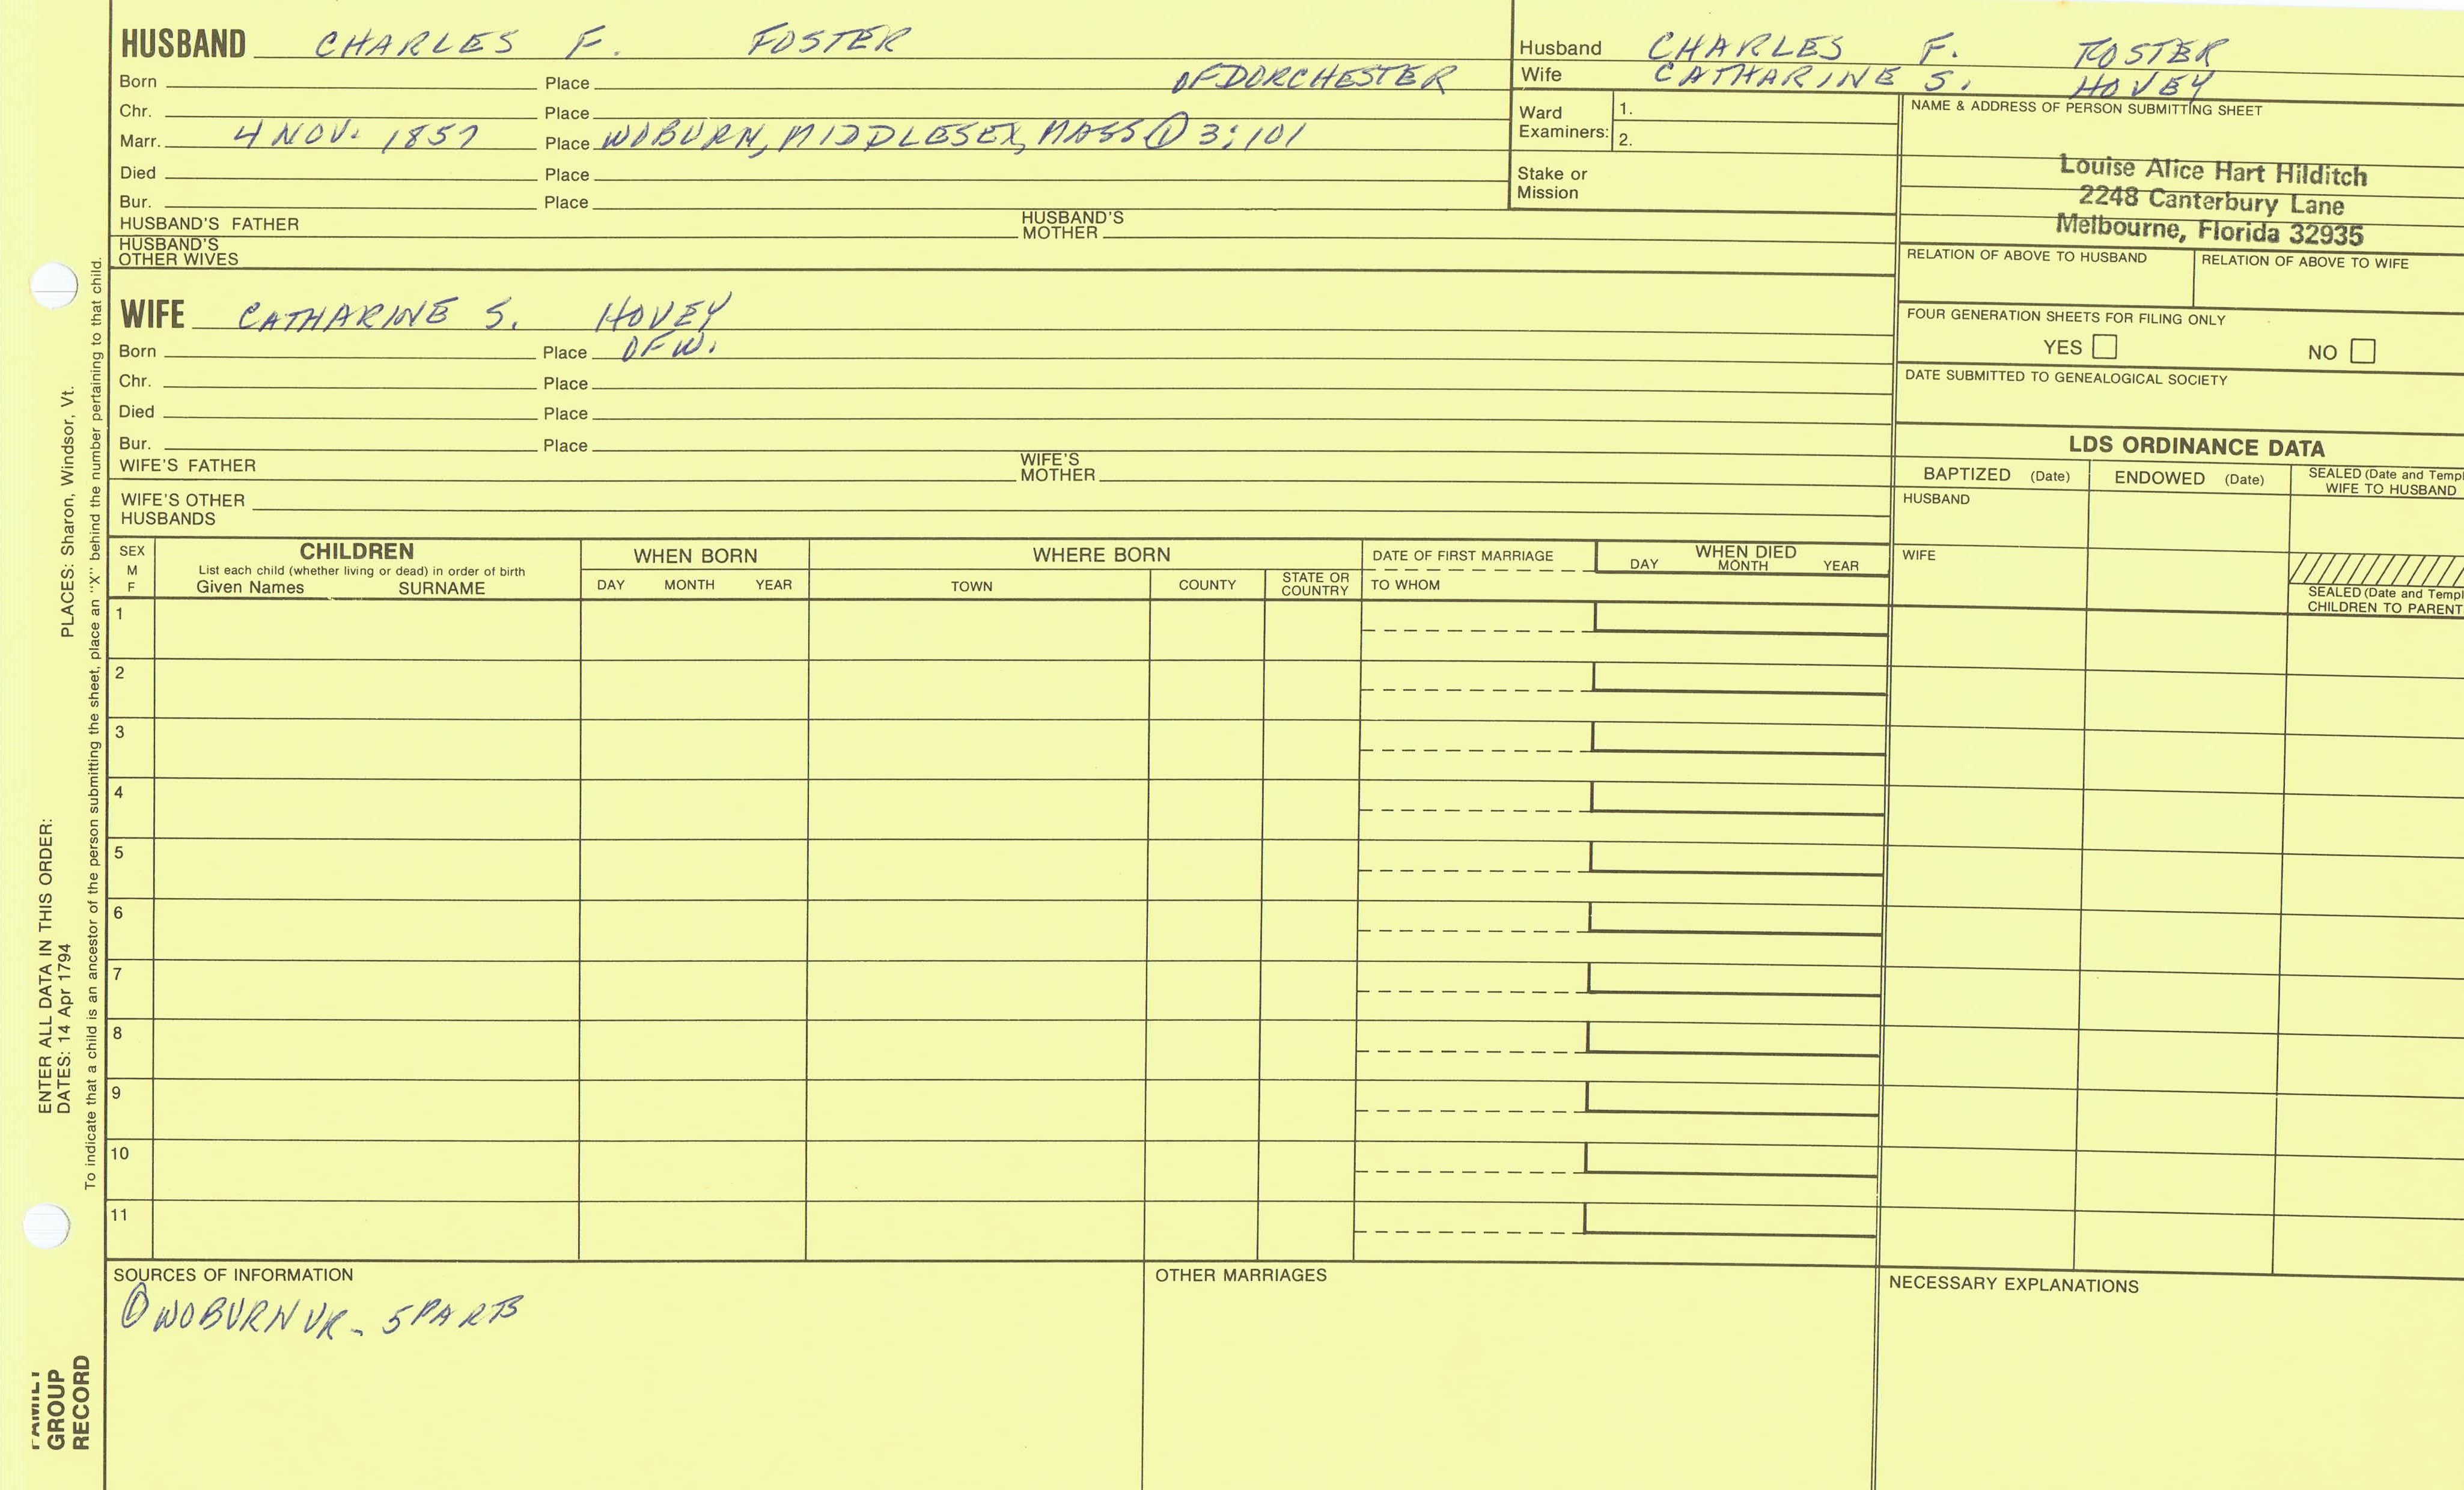 HUSBAND CHARLES F. FOSTER
Born Place OF DORCHESTER
Chr. Place
Marr. 4 NOV. 1857 Place WOBURN, MIDDLESEX, MASS ① 3:101
Died Place
Bur. Place
HUSBAND'S FATHER HUSBAND'S MOTHER
HUSBAND'S OTHER WIVES
WIFE CATHARINE S. HOVEY
Born Place OF W.
Chr. Place
Died Place
Bur. Place
WIFE'S FATHER WIFE'S MOTHER
WIFE'S OTHER HUSBANDS
Husband CHARLES F. FOSTER
Wife CATHARINE S. HOVEY
Ward Examiners: 1.
2.
Stake or Mission
NAME & ADDRESS OF PERSON SUBMITTING SHEET
Louise Alice Hart Hilditch
2248 Canterbury Lane
Melbourne, Florida 32935
RELATION OF ABOVE TO HUSBAND RELATION OF ABOVE TO WIFE
FOUR GENERATION SHEETS FOR FILING ONLY
YES NO
DATE SUBMITTED TO GENEALOGICAL SOCIETY
LDS ORDINANCE DATA
BAPTIZED (Date) ENDOWED (Date) SEALED (Date and Templ
WIFE TO HUSBAND
HUSBAND
WIFE
SEALED (Date and Templ
CHILDREN TO PARENT
SEX
M
F
CHILDREN
List each child (whether living or dead) in order of birth
Given Names SURNAME
WHEN BORN
DAY MONTH YEAR
WHERE BORN
TOWN COUNTY STATE OR COUNTRY
DATE OF FIRST MARRIAGE
TO WHOM
WHEN DIED
DAY MONTH YEAR
1
2
3
4
5
6
7
8
9
10
11
SOURCES OF INFORMATION
① WOBURN VR - 5 PARTS
OTHER MARRIAGES
NECESSARY EXPLANATIONS
ENTER ALL DATA IN THIS ORDER:
DATES: 14 Apr 1794 PLACES: Sharon, Windsor, Vt.
To indicate that a child is an ancestor of the person submitting the sheet, place an "X" behind the number pertaining to that child.
FAMILY
GROUP
RECORD